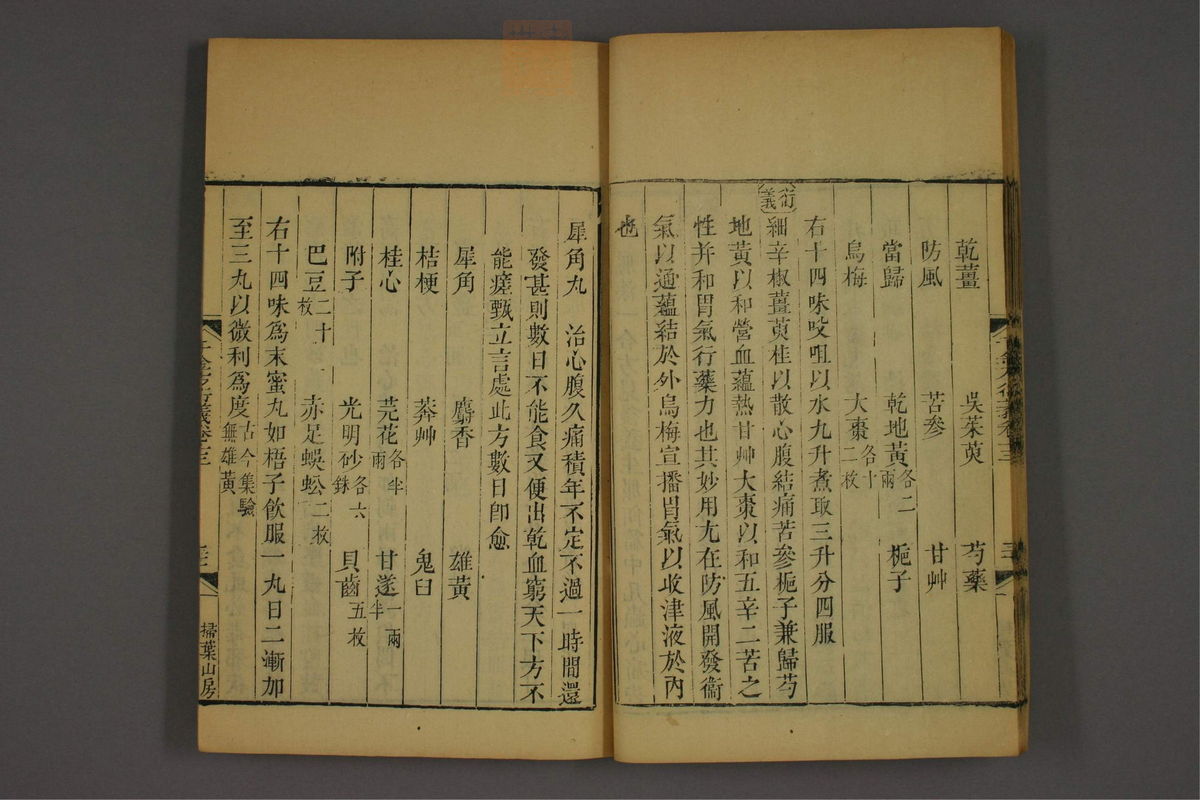 乾薑 吳茱萸 芍藥
防風 苦參 甘艸
當歸 乾地黃各二兩 梔子
烏梅 大棗各十二枚
右十四味㕮咀以水九升煮取三升分四服
衍義 細辛椒薑萸桂以散心腹結痛苦參梔子兼歸芍
地黃以和營血蘊熱甘艸大棗以和五辛二苦之
性并和胃氣行藥力也其妙用尤在防風開發衞
氣以通蘊結於外烏梅宣播胃氣以收津液於內
也
犀角丸 治心腹久痛積年不定不過一時間還
發甚則數日不能食又便出乾血窮天下方不
能瘥甄立言處此方數日卽愈
犀角 麝香 雄黃
桔梗 莽艸 鬼臼
桂心 芫花各半兩 甘遂一兩半
附子 光明砂各六銖 貝齒五枚
巴豆二十枚 赤足蜈蚣二枚
右十四味爲末蜜丸如梧子飮服一丸日二漸加
至三丸以微利爲度古今集驗無雄黃
千金方衍義卷十三
掃葉山房